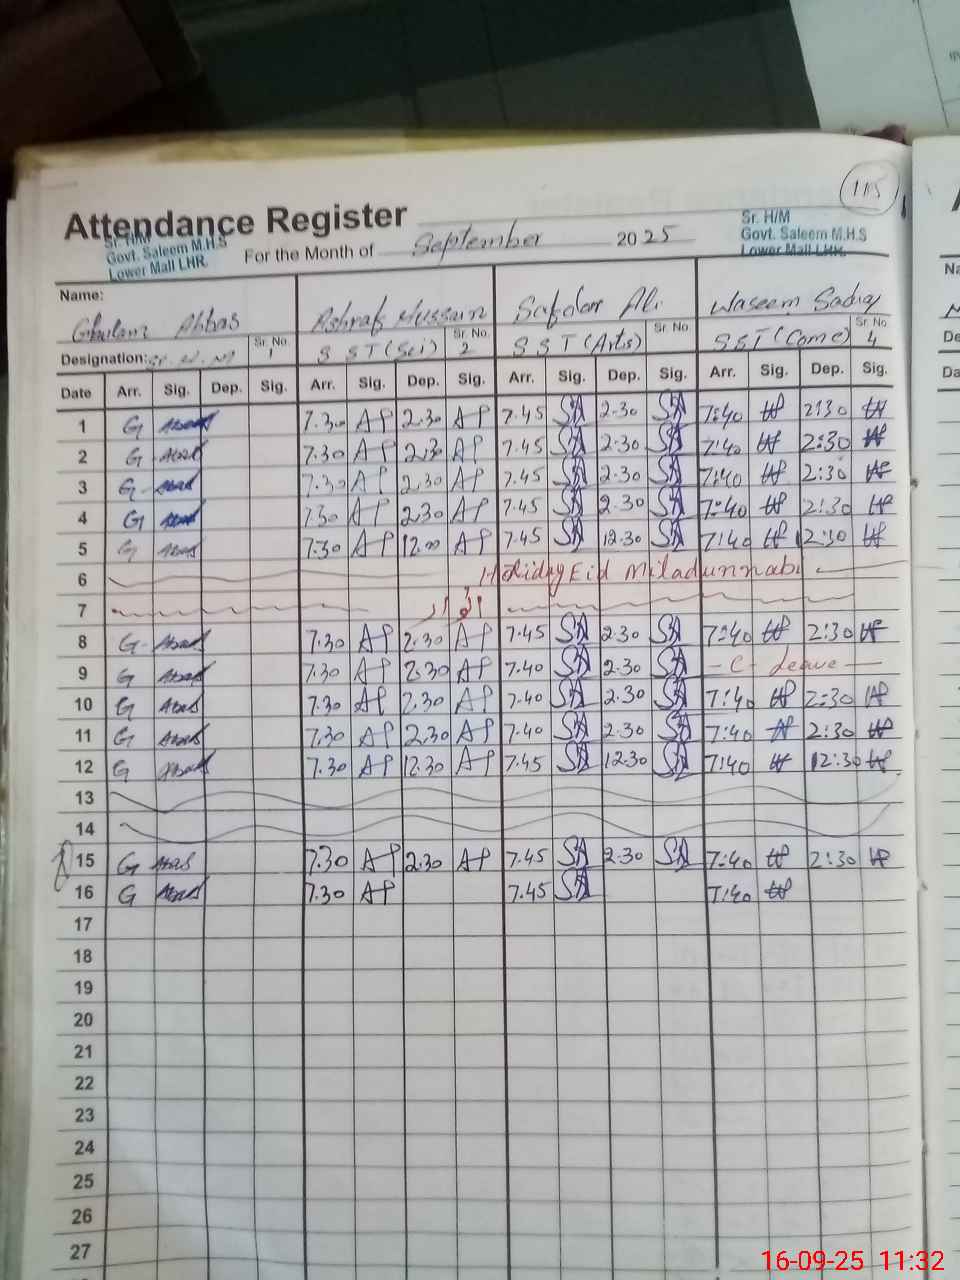 115
Attendance Register
Sr. H/M
Govt. Saleem M.H.S
Lower Mall LHR.
For the Month of September 2025
Sr. H/M
Govt. Saleem M.H.S
Lower Mall LHR.
Name: Ghulam Abbas Ashraf Hussain Safdar Ali Waseem Sadiq
Designation: Sr. H. M Sr. No. 1 S S T (Sci) Sr. No. 2 S S T (Arts) Sr. No S S T (Come) Sr. No 4
Date Arr. Sig. Dep. Sig. Arr. Sig. Dep. Sig. Arr. Sig. Dep. Sig. Arr. Sig. Dep. Sig.
1 G 7.30 AP 2.30 AP 7.45 SA 2-30 SA 7:40 2:30
2 G 7.30 AP 2.30 AP 7.45 SA 2-30 SA 7:40 2:30
3 G 7.30 AP 2.30 AP 7.45 SA 2-30 SA 7:40 2:30
4 G 7.30 AP 2.30 AP 7.45 SA 2-30 SA 7:40 2:30
5 G 7.30 AP 12.00 AP 7.45 SA 12-30 SA 7:40
6 Holiday Eid Miladunnabi
7 اتوار
8 G 7.30 AP 2.30 AP 7.45 SA 2-30 SA 7:40 2:30
9 G 7.30 AP 2.30 AP 7.40 SA 2-30 SA - C - Leave -
10 G 7.30 AP 2.30 AP 7.40 SA 2-30 SA 7:40 2:30
11 G 7.30 AP 2.30 AP 7.40 SA 2-30 SA 7:40 2:30
12 G 7.30 AP 12.30 AP 7.45 SA 12-30 SA 7:40 12:30
13
14
15 G 7.30 AP 2.30 AP 7.45 SA 2-30 SA 7:40 2:30
16 G 7.30 AP 7.45 SA 7:40
17
18
19
20
21
22
23
24
25
26
27
16-09-25 11:32